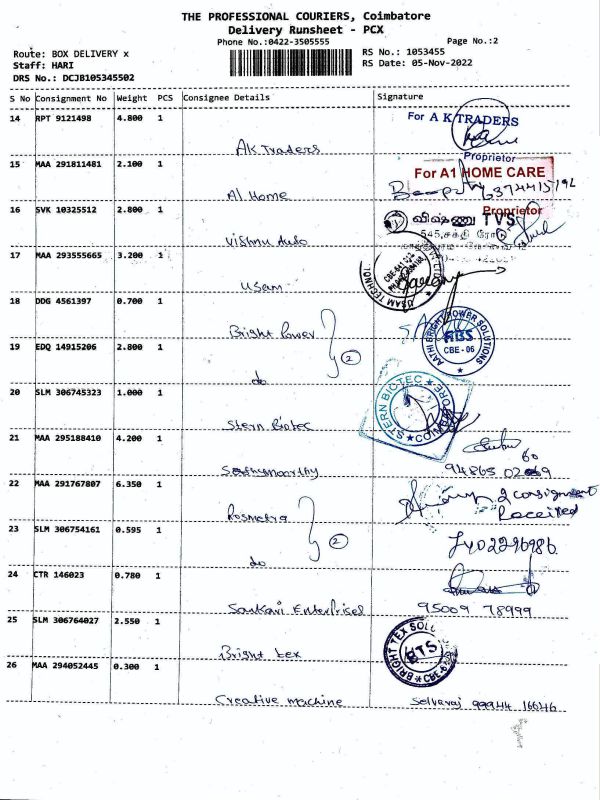 THE PROFESSIONAL COURIERS, Coimbatore
Delivery Runsheet - PCX
Phone No.:0422-3505555
Page No.:2
Route: BOX DELIVERY x
RS No.: 1053455
Staff: HARI
RS Date: 05-Nov-2022
DRS No.: DCJB105345502
S No Consignment No Weight PCS Consignee Details Signature
14 RPT 9121498 4.800 1
For A K TRADERS
AK Traders
Proprietor
15 MAA 291811481 2.100 1
For A1 HOME CARE
A1 Home
Proprietor
16 SVK 10325512 2.800 1
விஷ்ணு TVS
545, சக்தி ரோ
Vishnu Auto
17 MAA 293555665 3.200 1
USAM TECHNOL
Usam
18 DDG 4561397 0.700 1
Bright Power
AATHI BRIGHT POWER SOLUTIONS
ABS
CBE - 06
2
19 EDQ 14915206 2.800 1
do
20 SLM 306745323 1.000 1
STERN BIOTEC
COIMBATORE
Stern Biotec
21 MAA 295188410 4.200 1
Sathyamoorthy
22 MAA 291767807 6.350 1
2 consignment
Received
2
23 SLM 306754161 0.595 1
do
24 CTR 146023 0.780 1
Sankari Enterprises 95009 78999
25 SLM 306764027 2.550 1
BRIGHT TEX SOLU
BTS
CBE-6
Bright tex
26 MAA 294052445 0.300 1
Creative machine Selvaraj 99944 16646